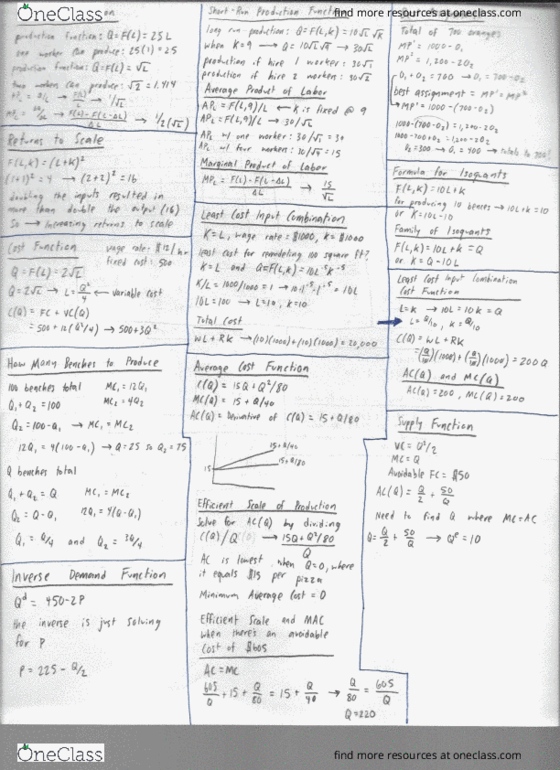 OneClass
find more resources at oneclass.com
production function: Q=F(L)= 25L
one worker can produce: 25(1)=25
production function: Q=F(L)= √L
two workers can produce: √2 = 1.414
Returns to Scale
F(L,K) = (L+K)²
(1+1)² = 4 → (2+2)² = 16
doubling the inputs resulted in
more than double the output (16)
so → increasing returns to scale
Cost Function
wage rate: $12/hr
fixed cost: 500
Q = F(L) = 2√L
Q=2√L → L = Q²/4 ← variable cost
C(Q) = FC + VC(Q)
= 500+12(Q²/4) → 500+3Q²
How Many Benches to Produce
100 benches total MC₁ = 12Q₁
Q₁+Q₂ = 100 MC₂ = 4Q₂
Q₂ = 100-Q₁ → MC₁ = MC₂
12Q₁ = 4(100-Q₁) → Q=25 so Q₂=75
Q benches total
Q₁+Q₂ = Q MC₁ = MC₂
Q₂ = Q-Q₁ 12Q₁ = 4(Q-Q₁)
Q₁ = Q/4 and Q₂ = 3Q/4
Inverse Demand Function
Qᵈ = 450-2P
the inverse is just solving
for P
P = 225 - Q/2
Short-Run Production Function
long run production: Q=F(L,K) = 10√L √K
when K=9 → Q = 10√L√9 → 30√L
production if hire 1 worker: 30√1
production if hire 2 workers: 30√2
Average Product of Labor
AP_L = F(L,9)/L ← K is fixed @ 9
AP_L = F(L,9)/L → 30/√L
AP_L w/ one worker: 30/√1 = 30
AP_L w/ four workers: 30/√4 = 15
Marginal Product of Labor
MP_L = F(L) - F(L-ΔL) / ΔL → 15/√L
Least Cost Input Combination
K=L, wage rate = $1000, K = $1000
least cost for remodeling 100 square ft?
K=L and Q=F(L,K) = 10L^.5 K^.5
K/L = 1000/1000 = 1 → 10·L^.5·L^.5 = 10L
10L = 100 → L=10, K=10
Total Cost
WL + RK → (10)(1000)+(10)(1000) = 20,000
Average Cost Function
C(Q) = 15Q + Q²/80
MC(Q) = 15 + Q/40
AC(Q) = derivative of C(Q) = 15+Q/80
15
15+Q/40
15+Q/80
Efficient Scale of Production
Solve for AC(Q) by dividing
C(Q)/Q → 15Q+Q²/80 / Q
AC is lowest when Q=0, where
it equals $15 per
pizza
Minimum Average Cost = 0
Efficient Scale and MAC
when there's an avoidable
cost of $605
AC = MC
605/Q + 15 + Q/80 = 15 + Q/40 → Q/80 = 605/Q
Q=220
Total of 700 oranges
MP¹ = 1000-O₁
MP² = 1,200-2O₂
O₁+O₂ = 700 → O₁ = 700-O₂
best assignment = MP¹ = MP²
MP¹ = 1000-(700-O₂)
1000-(700-O₂) = 1,200-2O₂
1000-700+O₂ = 1,200-2O₂
O₂ = 300 → O₁ = 400 → totals to 700!
Formula for Isoquants
F(L,K) = 10L+K
for producing 10 benches → 10L+K = 10
or K = 10L-10
Family of Isoquants
F(L,K) = 10L+K = Q
or K = Q-10L
Least Cost Input Combination
Cost Function
L=K → 10L = 10K = Q
L = Q/10, K = Q/10
C(Q) = WL + RK
= (Q/10)(1000)+(Q/10)(1000) = 200Q
AC(Q) and MC(Q)
AC(Q) = 200, MC(Q) = 200
Supply Function
VC = Q²/2
MC = Q
Avoidable FC = $50
AC(Q) = Q/2 + 50/Q
Need to find Q where MC=AC
Q = Q/2 + 50/Q → Qᵉ = 10
OneClass
find more resources at oneclass.com